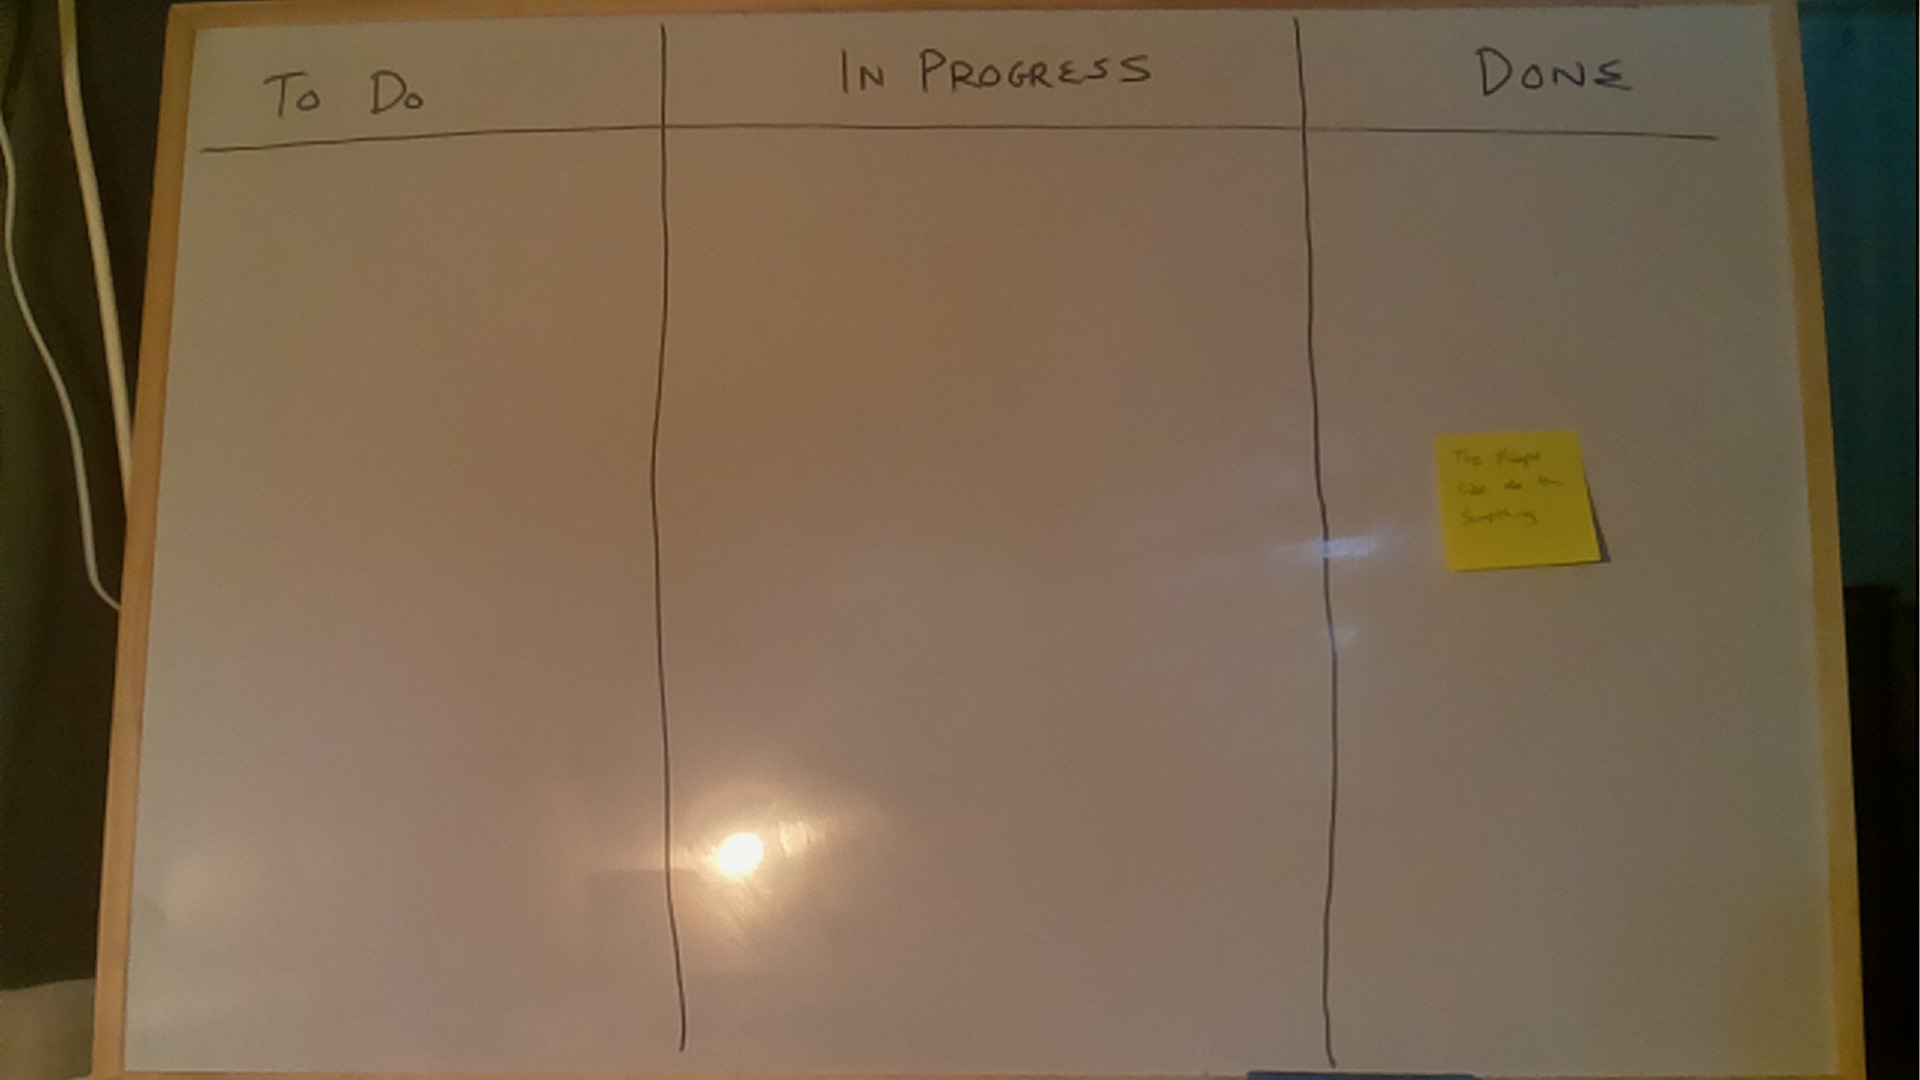 To Do
IN PROGRESS
DONE
The Player
Can do the
Something